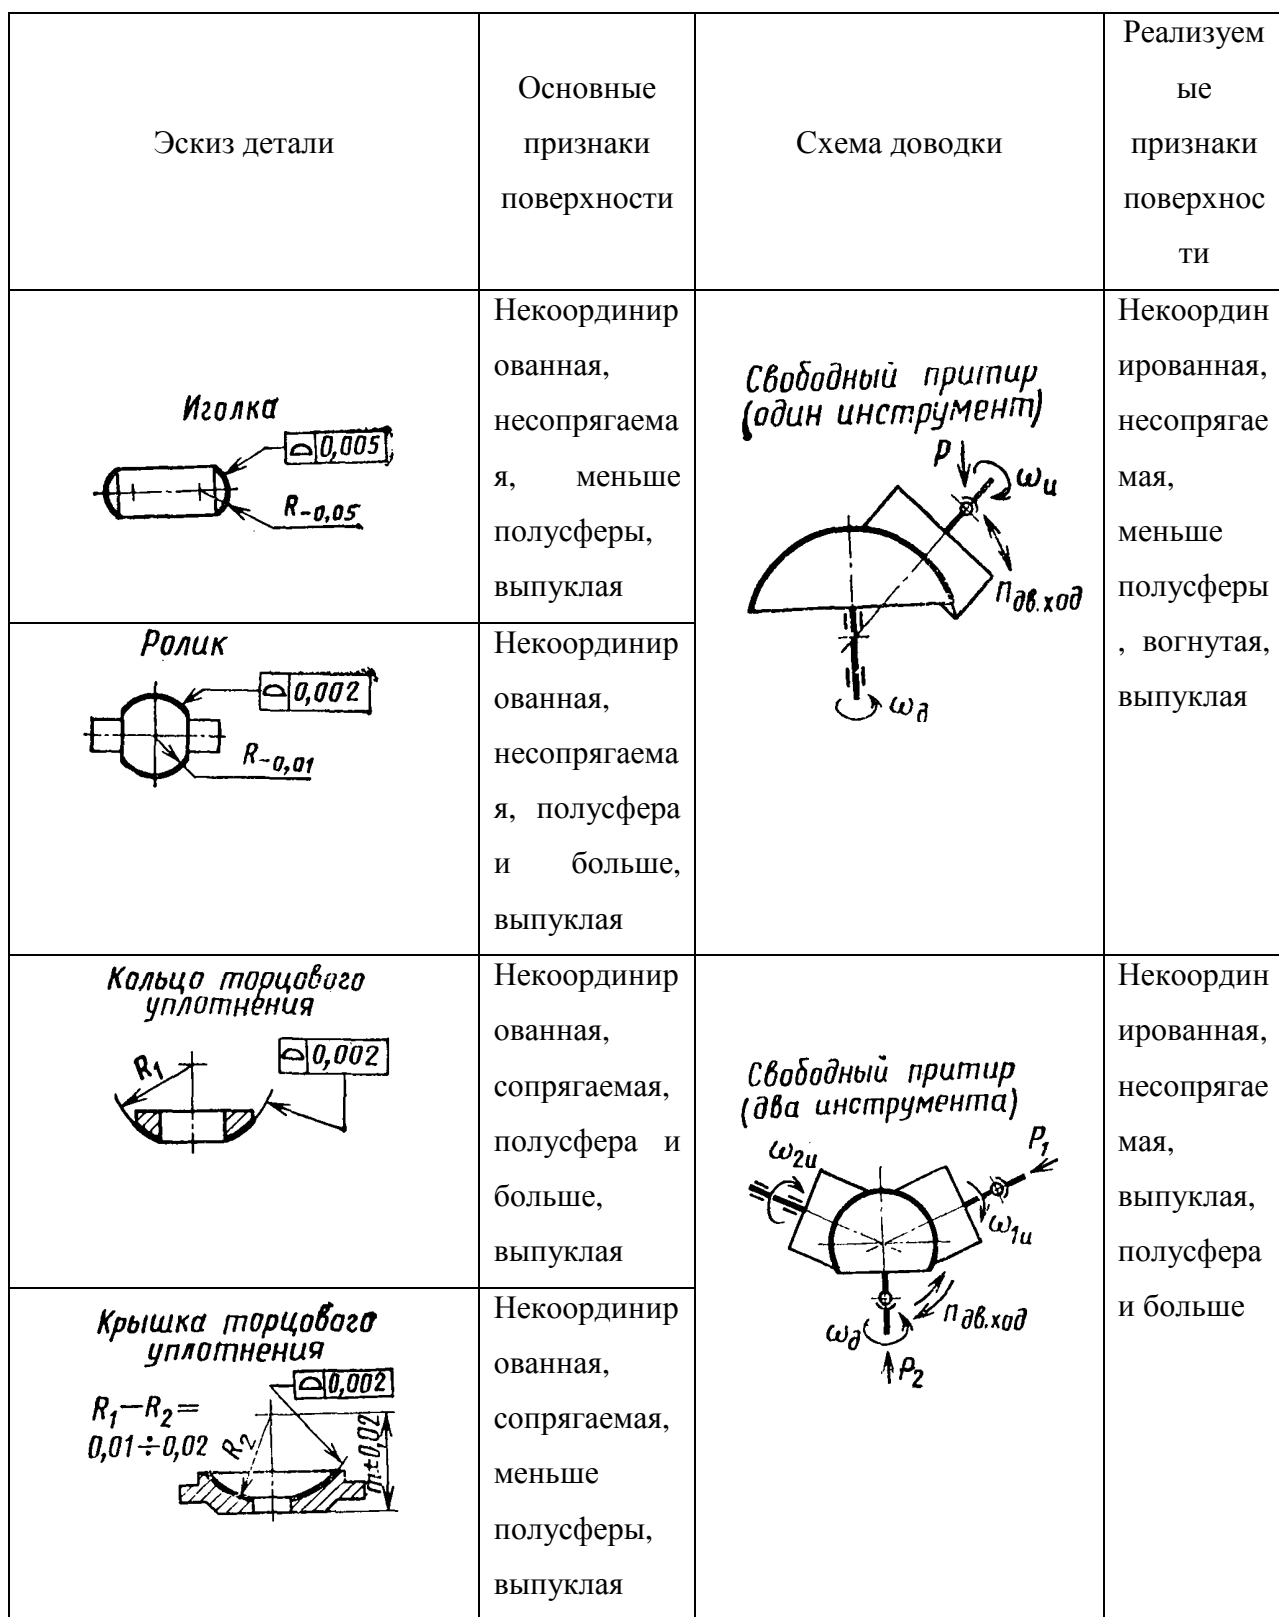 Эскиз детали
Основные
признаки
поверхности
Схема доводки
Реализуем
ые
признаки
поверхнос
ти
Иголка
⌓ 0,005
R-0,05
Некоординир
ованная,
несопрягаема
я, меньше
полусферы,
выпуклая
Свободный притир
(один инструмент)
P
ωи
nдв.ход
ωд
Некоордин
ированная,
несопрягае
мая,
меньше
полусферы
, вогнутая,
выпуклая
Ролик
⌓ 0,002
R-0,01
Некоординир
ованная,
несопрягаема
я, полусфера
и больше,
выпуклая
Кольцо торцового
уплотнения
R1
⌓ 0,002
Некоординир
ованная,
сопрягаемая,
полусфера и
больше,
выпуклая
Свободный притир
(два инструмента)
ω2и
P1
ω1и
nдв.ход
ωд
P2
Некоордин
ированная,
несопрягае
мая,
выпуклая,
полусфера
и больше
Крышка торцового
уплотнения
⌓ 0,002
R1−R2=
0,01÷0,02
R2
m±0,02
Некоординир
ованная,
сопрягаемая,
меньше
полусферы,
выпуклая